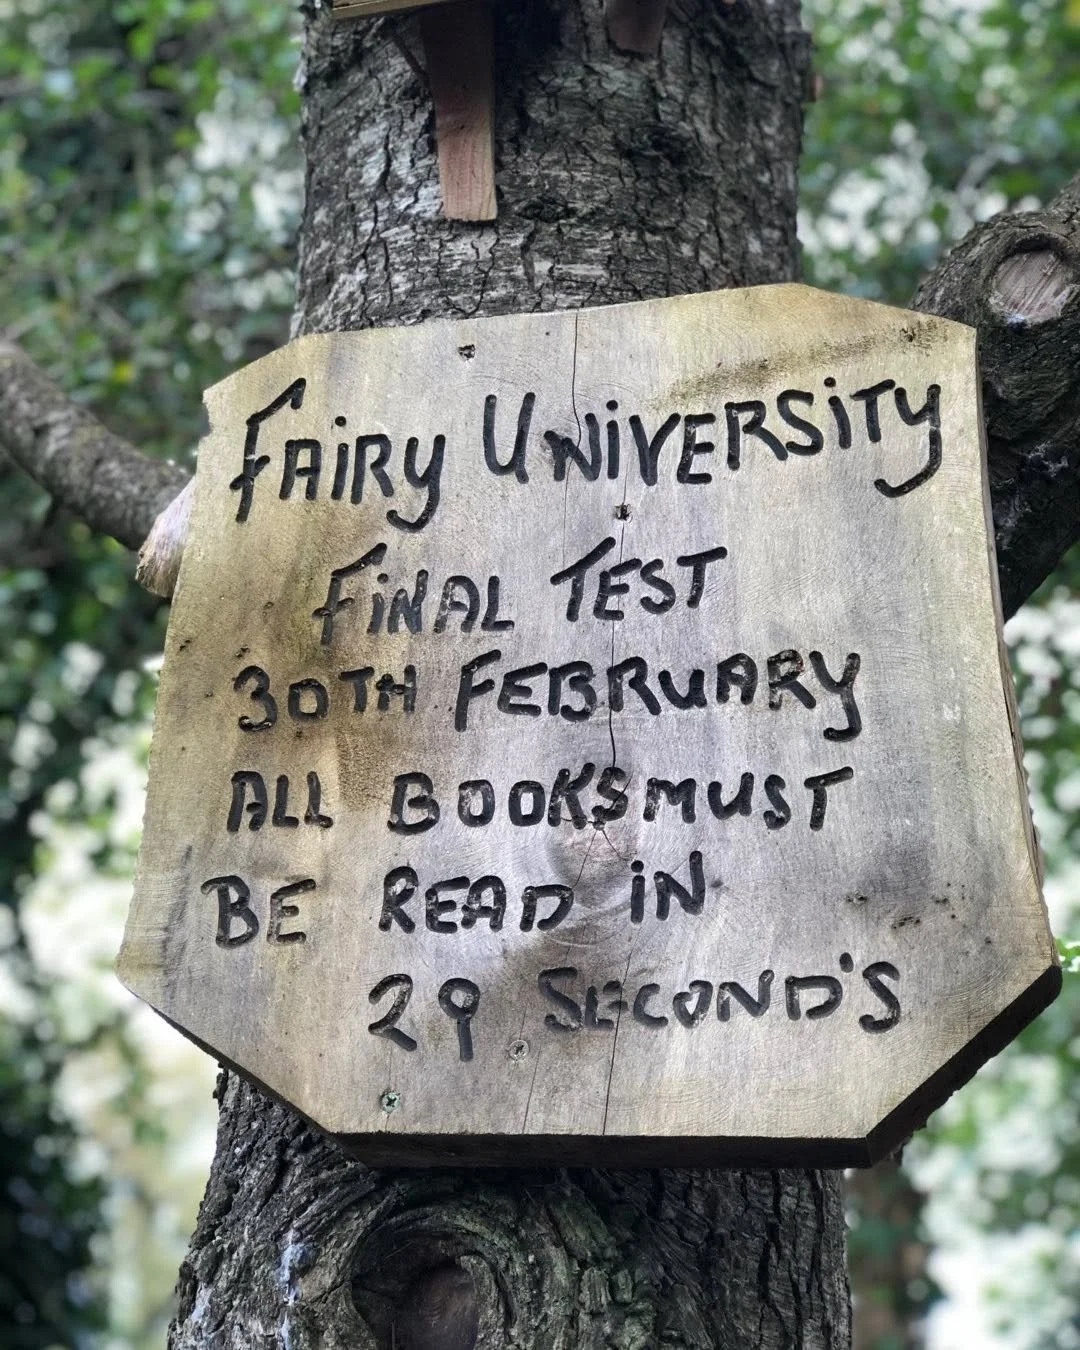 FAiRY UNiVERSiTY
FiNAL TEST
30TH FEBRUARY
ALL BOOKS MUST
BE READ iN
29 SECOND'S